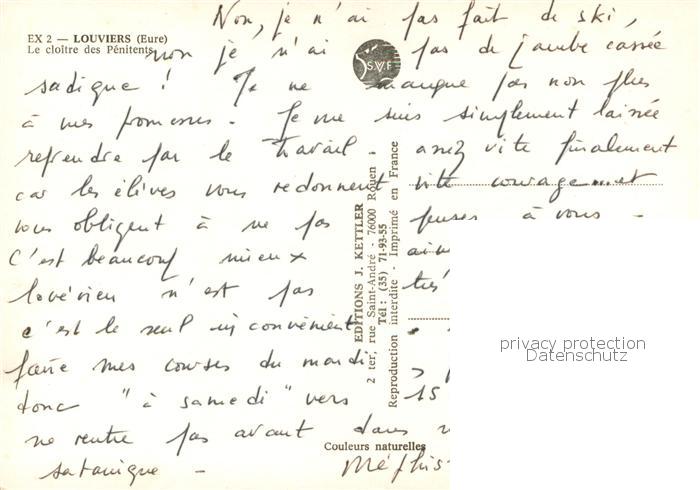 EX 2 — LOUVIERS (Eure)
Le cloître des Pénitents
Non, je n'ai pas fait de ski,
non je n'ai pas de jambe cassée
sadique ! Je ne manque pas non plus
à mes promesses - Je me suis simplement laissée
reprendre par le travail - assez vite finalement
car les élèves vous redonnent vite courage et
vous obligent à ne pas penser à vous -
C'est beaucoup mieux
lovérien n'est pas
c'est le seul inconvénient
faire mes courses du mardi
donc "à samedi" vers 15
ne rentre pas avant dans
satanique -
SVF
EDITIONS J. KETTLER
2 ter, rue Saint-André - 76000 Rouen
Tél : (35) 71-93-55
Reproduction interdite - Imprimé en France
Couleurs naturelles
privacy protection
Datenschutz